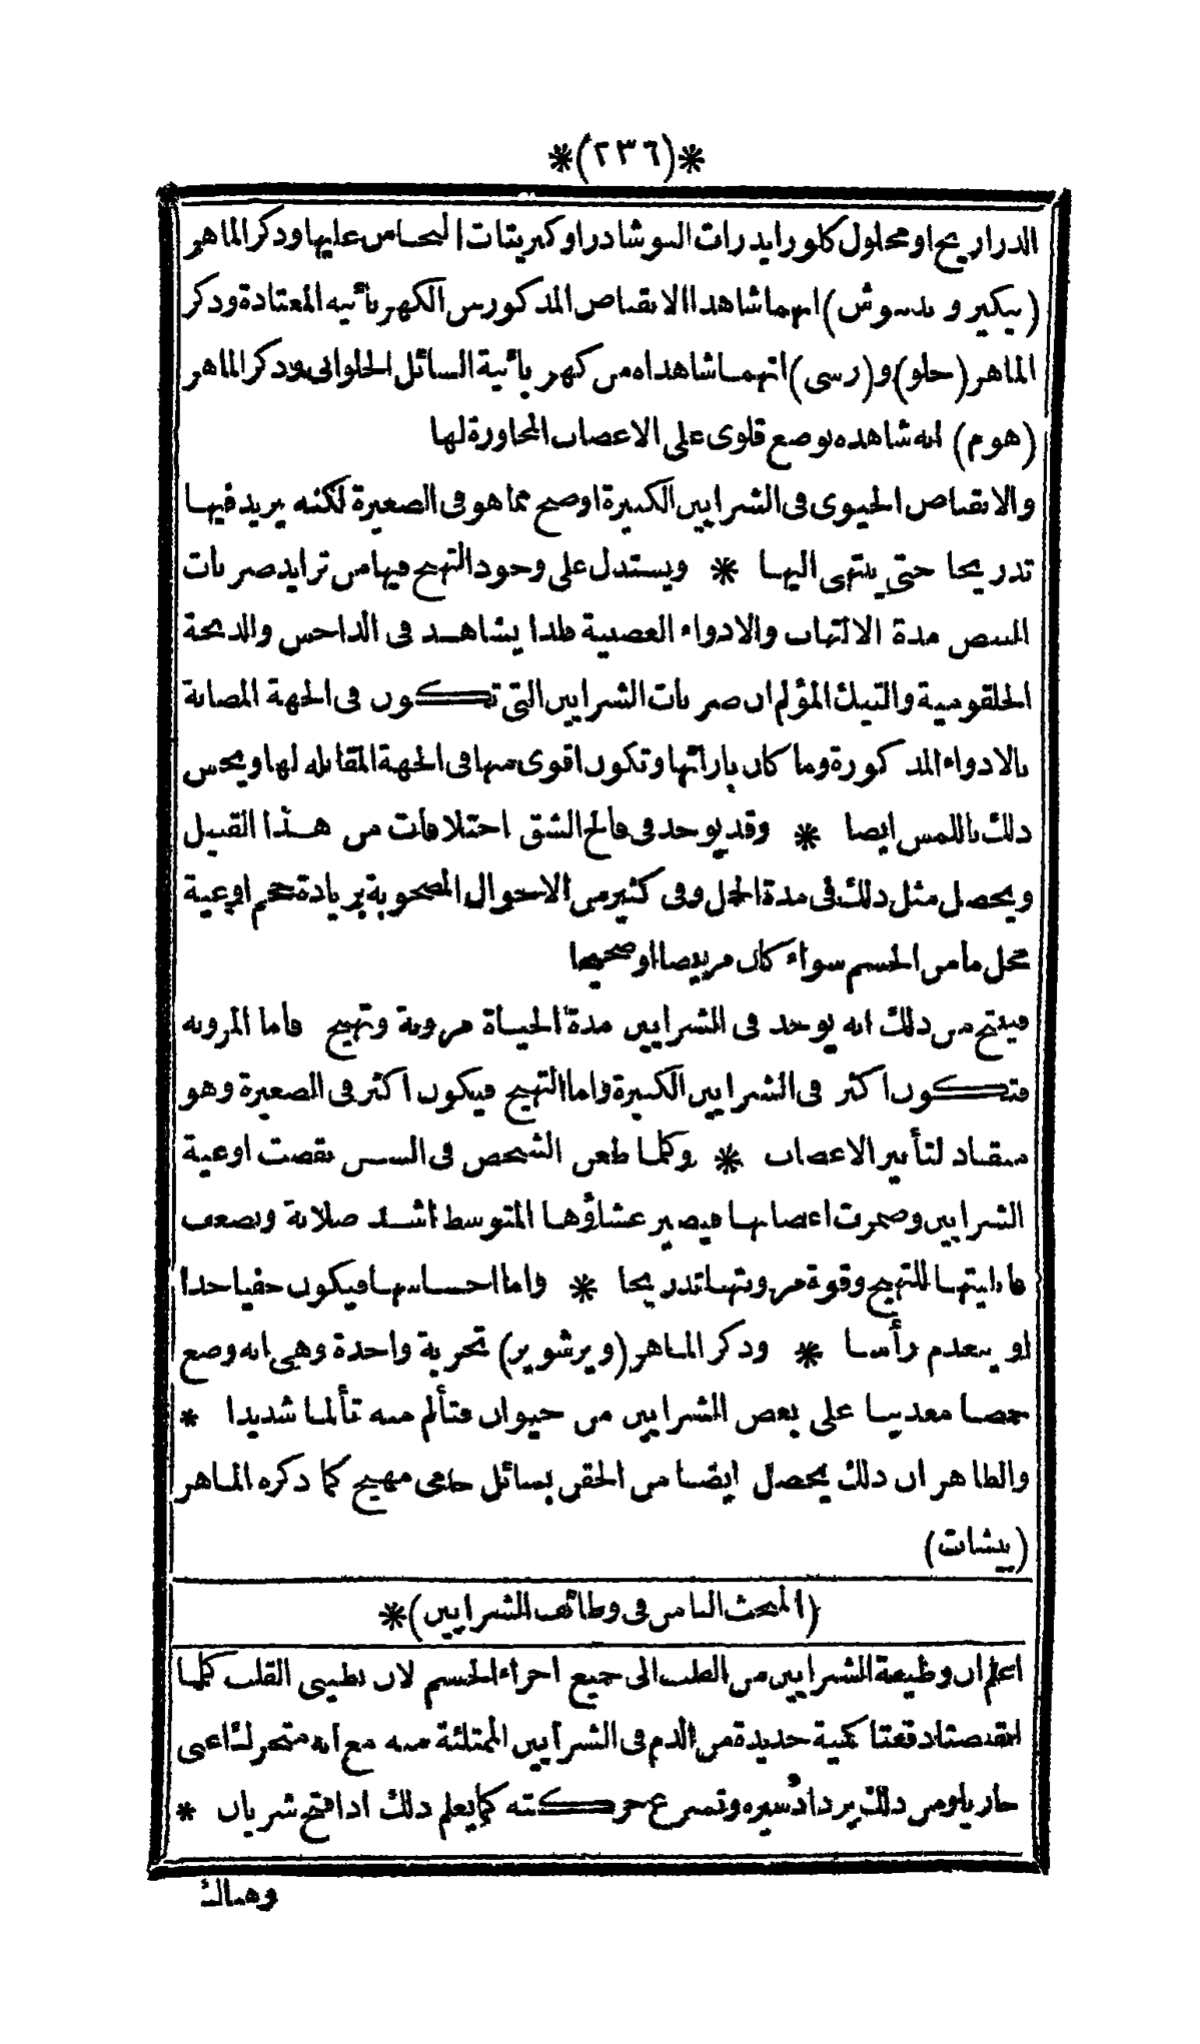 *(٢٣٦)*
الدراريح او محلول كلورايدرات النوشادر او كبريتات النحاس عليها وذكر الماهر
(بيكير و) انهما شاهدا الانقباض المذكور من الكهربائية المعتادة وذكر
الماهر (حلو) و (رسى) انهما شاهداه من كهربائية السائل الحلوانى وذكر الماهر
(هوم) انه شاهده بوضع قلوى على الاعصاب المجاورة لها
والانقباض الحيوى فى الشرايين الكبيرة اوضح مما هو فى الصغيرة لكنه يزيد فيها
تدريجا حتى ينتهى اليها * ويستدل على وجود التهيج فيها من تزايد ضربات
النبض مدة الالتهاب والادواء العصبية فلذا يشاهد فى الداحس والذبحة
الحلقومية والتيك المؤلم ان ضربات الشرايين التى تكون فى الجهة المصابة
بالادواء المذكورة وما كان بازائها وتكون اقوى منها فى الجهة المقابلة لها ويحس
ذلك باللمس ايضا * وقد يوجد فى فالج الشق اختلافات من هذا القبيل
ويحصل مثل ذلك فى مدة الحمل وفى كثير من الاحوال المصحوبة بزيادة حجم اوعية
محل ما من الجسم سواء كان مريضا او صحيحا
فينتج من ذلك انه يوجد فى الشرايين مدة الحياة مرونة وتهيج فاما المرونه
فتكون اكثر فى الشرايين الكبيرة واما التهيج فيكون اكثر فى الصغيرة وهو
منقاد لتأثير الاعصاب * وكلما طعن الشخص فى السن نقصت اوعية
الشرايين وضمرت اعصابها فيصير غشاؤها المتوسط اشد صلابة وتضعف
قابليتها للتهيج وقوة مرونتها تدريجا * واما احساسها فيكون خفيا جدا
او ينعدم رأسا * وذكر الماهر (ويرشوير) تجربة واحدة وهى انه وضع
حمضا معدنيا على بعض الشرايين من حيوان فتألم منه تألما شديدا *
والظاهر ان ذلك يحصل ايضا من الحقن بسائل حامى مهيج كما ذكره الماهر
(بيشات)
(المبحث الثامن فى وظائف الشرايين)*
اعلم ان وظيفة الشرايين من القلب الى جميع اجزاء الجسم لان بطينى القلب كلما
انقبضتا دفعتا كمية جديدة من الدم فى الشرايين الممتلئة منه مع انه متحرك اعنى
جاريا ومن ذلك يزداد سيره وتسرع حركته كما يعلم ذلك اذا فتح شريان *
وهناك